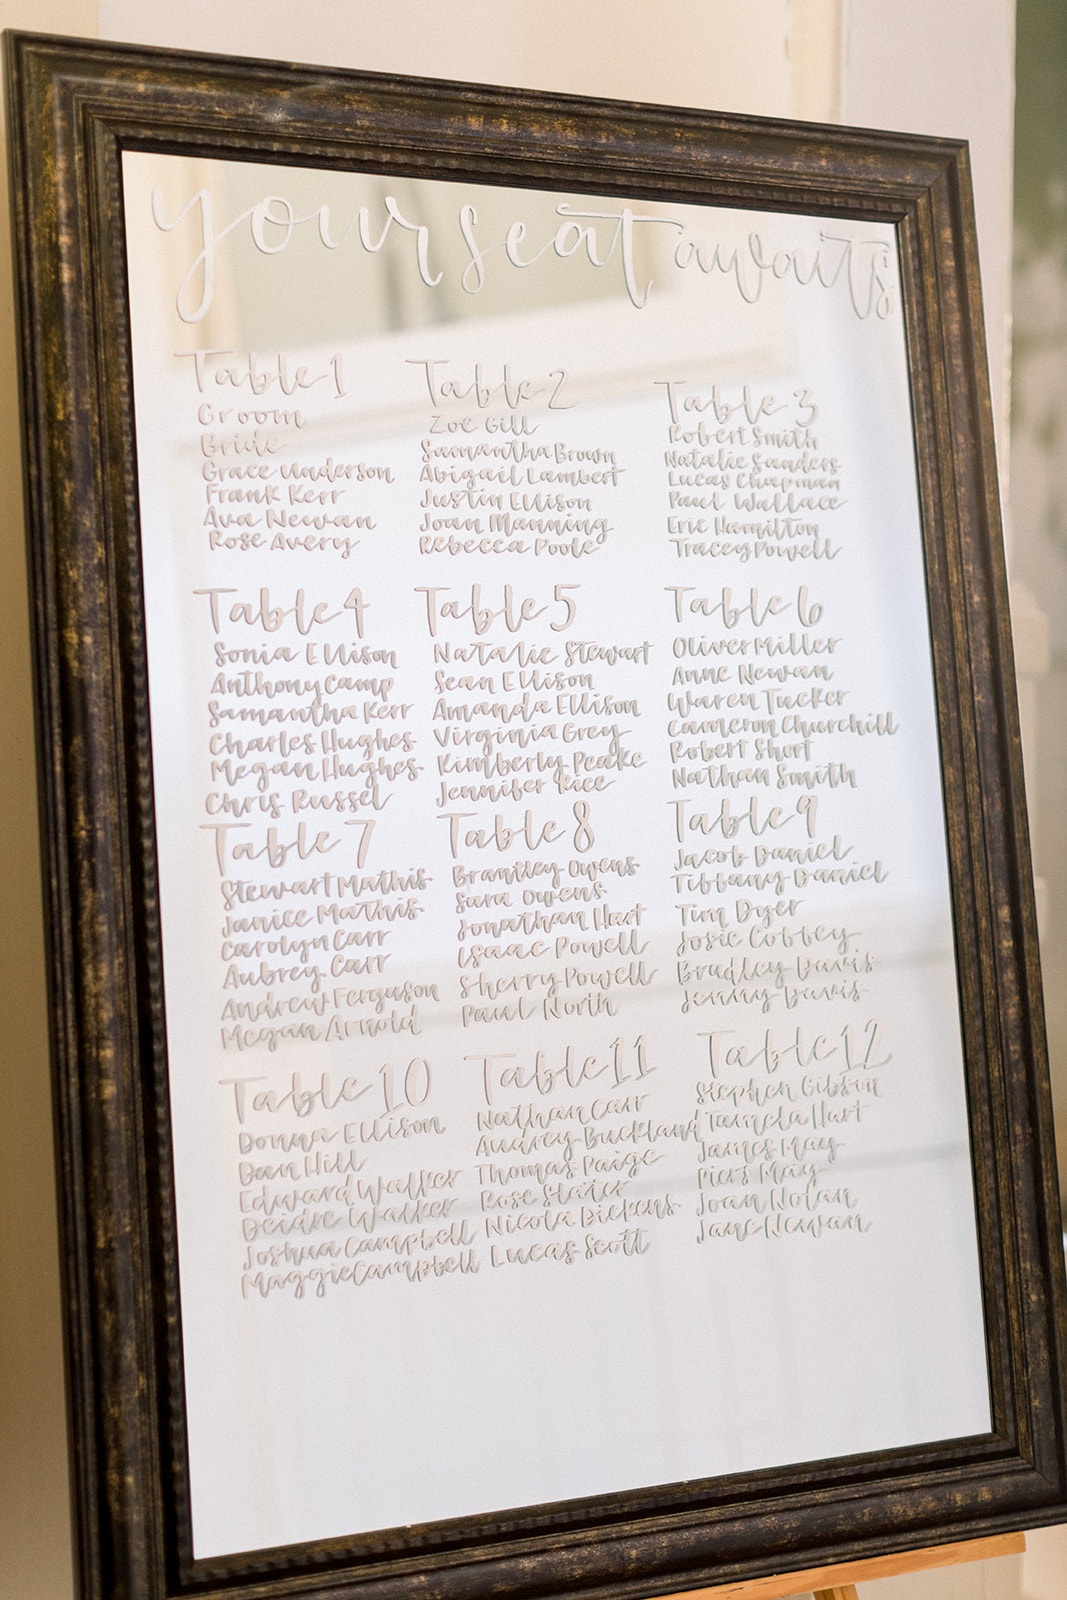 your seat awaits
Table 1
Groom
Bride
Grace Underson
Frank Kerr
Ava Newan
Rose Avery
Table 2
Zoe Gill
Samantha Brown
Abigail Lambert
Justin Ellison
Joan Manning
Rebecca Poole
Table 3
Robert Smith
Natalie Sanders
Lucas Chapman
Paul Wallace
Eric Hamilton
Tracey Powell
Table 4
Sonia Ellison
Anthony Camp
Samantha Kerr
Charles Hughes
Megan Hughes
Chris Russel
Table 5
Natalie Stewart
Sean Ellison
Amanda Ellison
Virginia Grey
Kimberly Peake
Jennifer Rice
Table 6
Oliver Miller
Anne Newan
Waren Tucker
Cameron Churchill
Robert Short
Nathan Smith
Table 7
Stewart Mathis
Janice Mathis
Carolyn Carr
Aubrey Carr
Andrew Ferguson
Megan Arnold
Table 8
Brantley Owens
Sara Owens
Jonathan Hart
Isaac Powell
Sherry Powell
Paul North
Table 9
Jacob Daniel
Tiffany Daniel
Tim Dyer
Josie Coffey
Bradley Davis
Jenny Davis
Table 10
Donna Ellison
Dan Hill
Edward Walker
Deidre Walker
Joshua Campbell
Maggie Campbell
Table 11
Nathan Carr
Audrey Buckland
Thomas Paige
Rose Slater
Nicola Dickens
Lucas Scott
Table 12
Stephen Gibson
Tamela Hart
James May
Piers May
Joan Nolan
Jane Newan